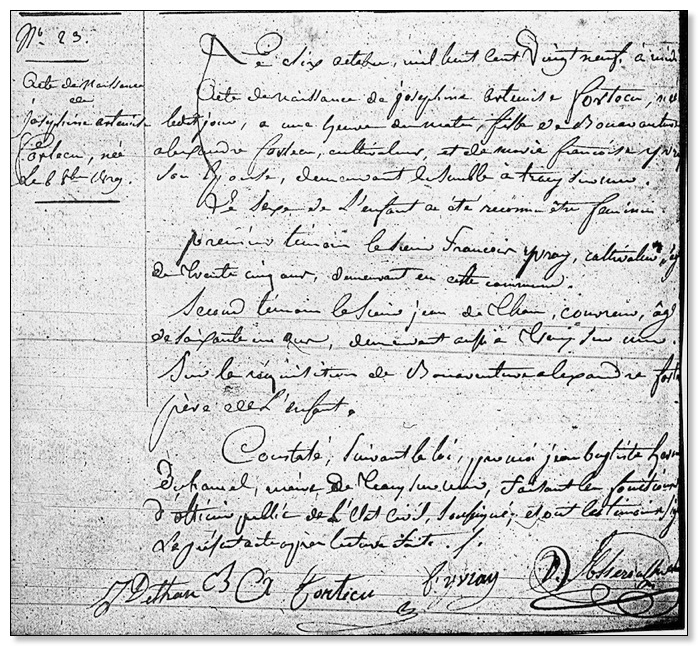 N° 23.
Acte de Naissance
de
josephine artemise
née
Le six octobre, mil huit cent Vingt neuf, à midi
Acte de naissance de josephine artemise
ledit jour, a une heure du matin, fille de Bonaventure
alexandre cultivateur, et de marie francoise yvray
son Epouse, demeurant Ensemble à tracy sur mer.
Le Sexe de L'enfant a été reconnu être feminin.
premier témoin le Sieur Francois yvray, cultivateur,
de Trente cinq ans, demeurant en cette commune.
Second témoin le Sieur jean de Than, couvreur, âgé
de soixante un ans, demeurant aussi à Tracy sur mer.
Sur la réquisition de Bonaventure alexandre
père de L'enfant.
Constaté, suivant la loi, par moi jean baptiste
maire de Tracy sur mer, faisant les fonctions
d'officier public de L'Etat Civil, soussigné, et ont les témoins
Le présent acte après lecture faite.
J Dethan B A f yvray